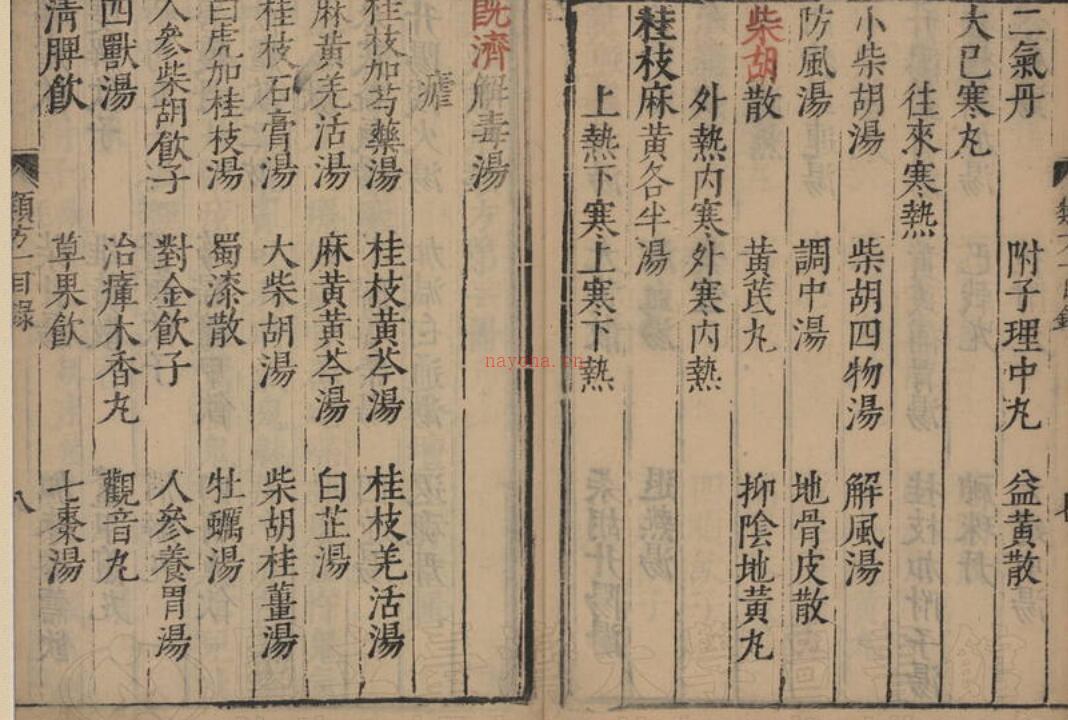 二氣丹 附子理中丸 益黃散
大已寒丸
往來寒熱
小柴胡湯 柴胡四物湯 解風湯
防風湯 調中湯 地骨皮散
柴胡散 黃芪丸 抑陰地黃丸
外熱內寒外寒內熱
桂枝麻黃各半湯
上熱下寒上寒下熱
既濟解毒湯
瘧
桂枝加芍藥湯 桂枝黃芩湯 桂枝羌活湯
麻黃羌活湯 麻黃黃芩湯 白芷湯
桂枝石膏湯 大柴胡湯 柴胡桂薑湯
白虎加桂枝湯 蜀漆散 牡蠣湯
人參柴胡飲子 對金飲子 人參養胃湯
四獸湯 治瘴木香丸 觀音丸
清脾飲 草果飲 七棗湯
類方一目錄 八
nayona.cn